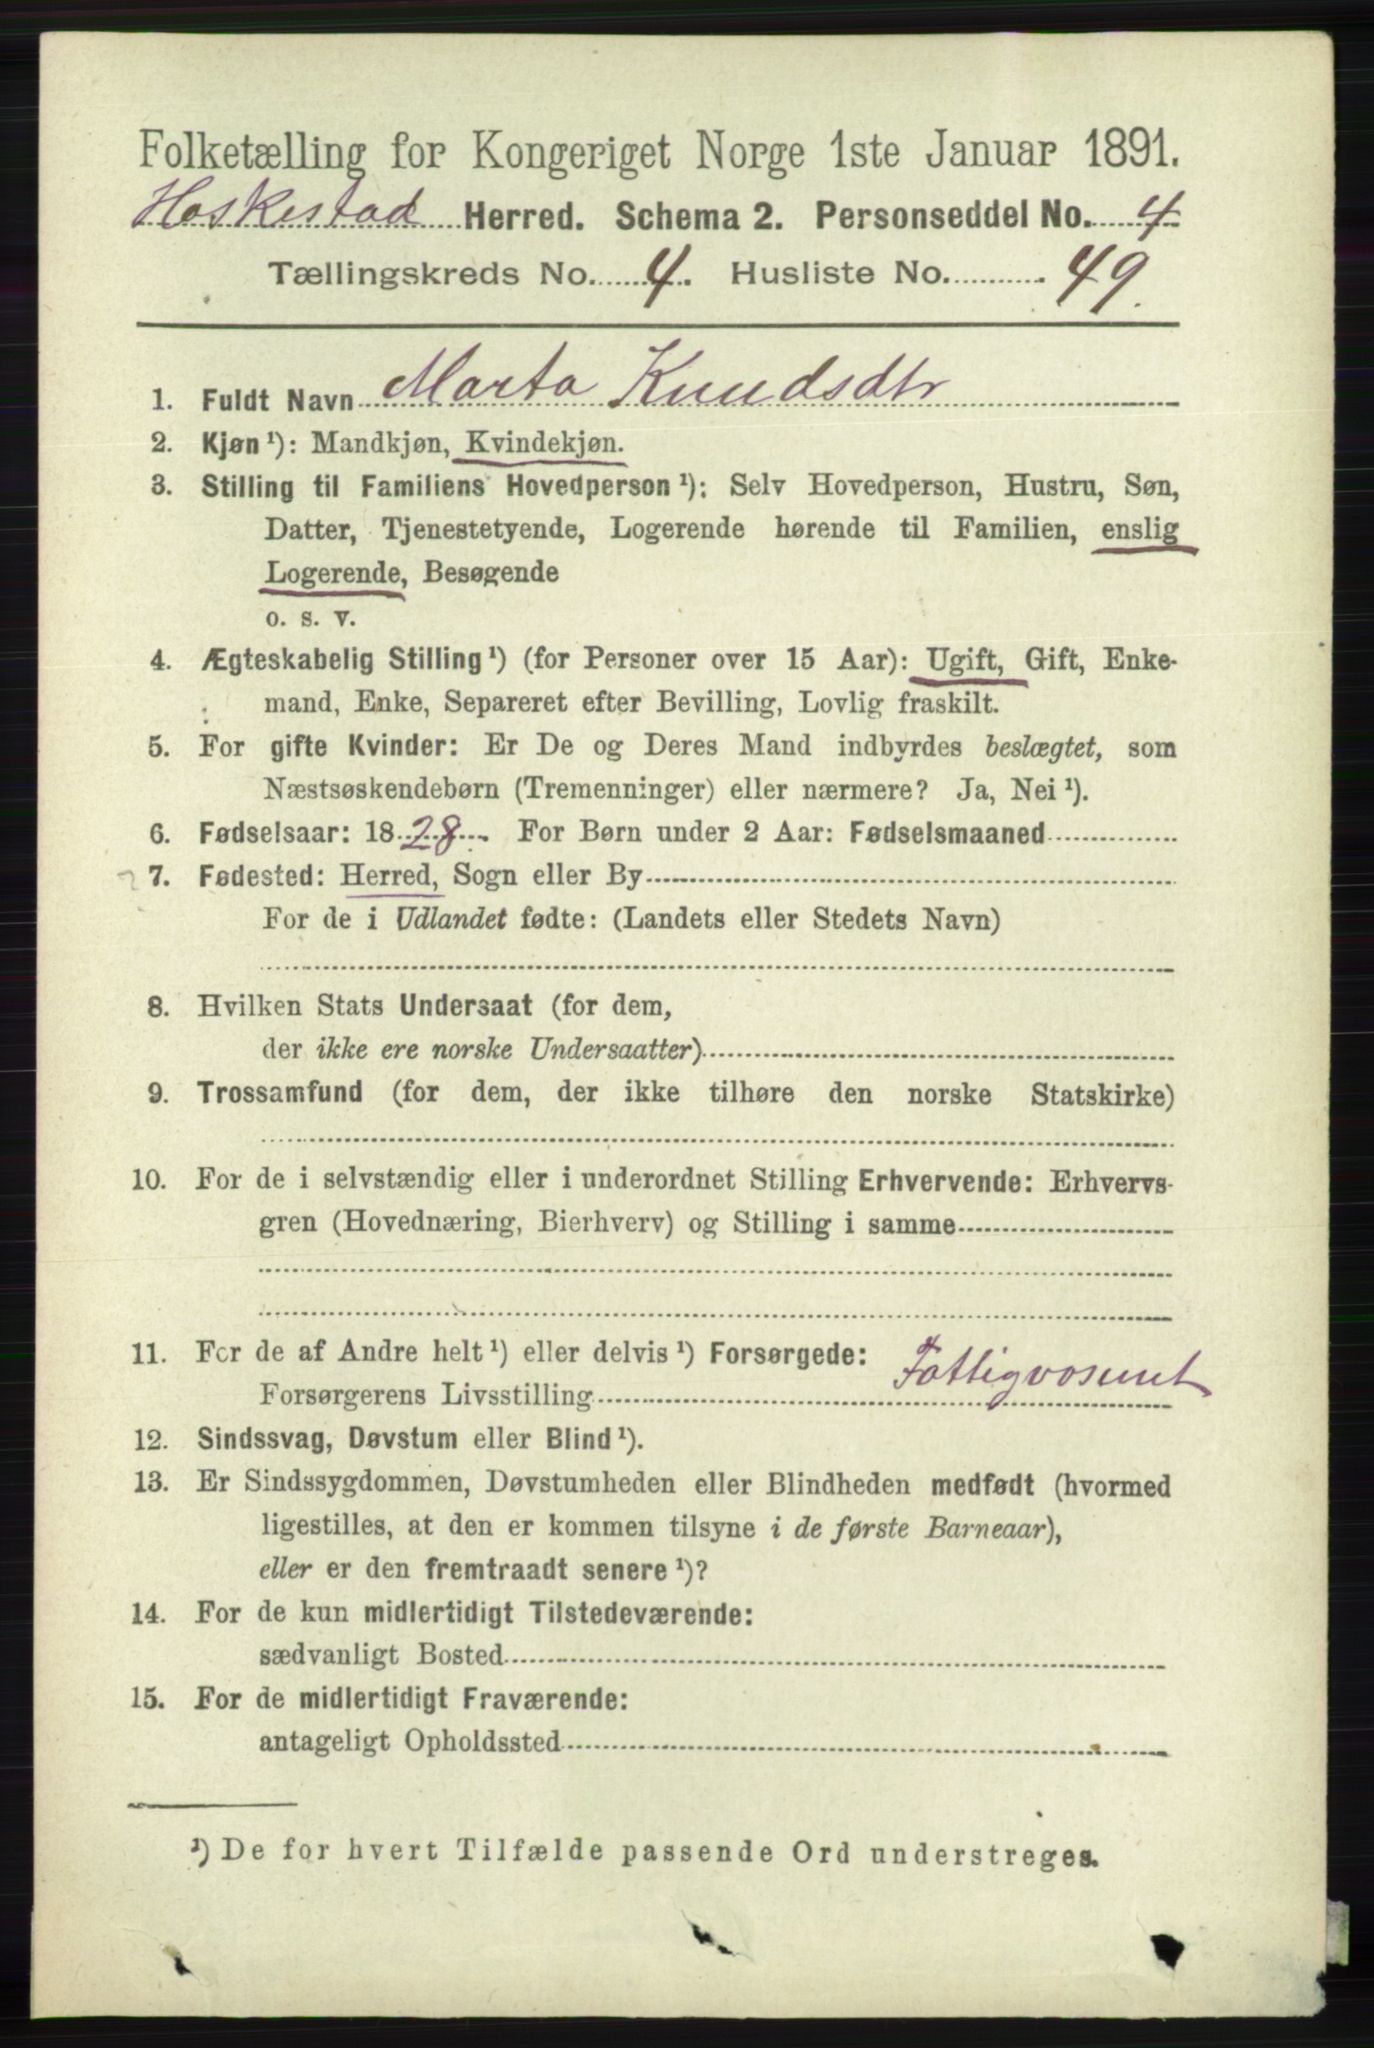 Folketælling for Kongeriget Norge 1ste Januar 1891.
Heskestad Herred. Schema 2. Personseddel No. 4
Tællingskreds No. 4. Husliste No. 49.
1. Fuldt Navn Marta Knudsdtr
2. Kjøn ¹): Mandkjøn, Kvindekjøn.
3. Stilling til Familiens Hovedperson ¹): Selv Hovedperson, Hustru, Søn,
Datter, Tjenestetyende, Logerende hørende til Familien, enslig
Logerende, Besøgende
o. s. v.
4. Ægteskabelig Stilling ¹) (for Personer over 15 Aar): Ugift, Gift, Enke-
mand, Enke, Separeret efter Bevilling, Lovlig fraskilt.
5. For gifte Kvinder: Er De og Deres Mand indbyrdes beslægtet, som
Næstsøskendebørn (Tremenninger) eller nærmere? Ja, Nei ¹).
6. Fødselsaar: 1828. For Børn under 2 Aar: Fødselsmaaned
7. Fødested: Herred, Sogn eller By
For de i Udlandet fødte: (Landets eller Stedets Navn)
8. Hvilken Stats Undersaat (for dem,
der ikke ere norske Undersaatter)
9. Trossamfund (for dem, der ikke tilhøre den norske Statskirke)
10. For de i selvstændig eller i underordnet Stilling Erhvervende: Erhvervs-
gren (Hovednæring, Bierhverv) og Stilling i samme
11. For de af Andre helt ¹) eller delvis ¹) Forsørgede:
Forsørgerens Livsstilling Fattigvæsenet
12. Sindssvag, Døvstum eller Blind ¹).
13. Er Sindssygdommen, Døvstumheden eller Blindheden medfødt (hvormed
ligestilles, at den er kommen tilsyne i de første Barneaar),
eller er den fremtraadt senere ¹)?
14. For de kun midlertidigt Tilstedeværende:
sædvanligt Bosted
15. For de midlertidigt Fraværende:
antageligt Opholdssted
¹) De for hvert Tilfælde passende Ord understreges.